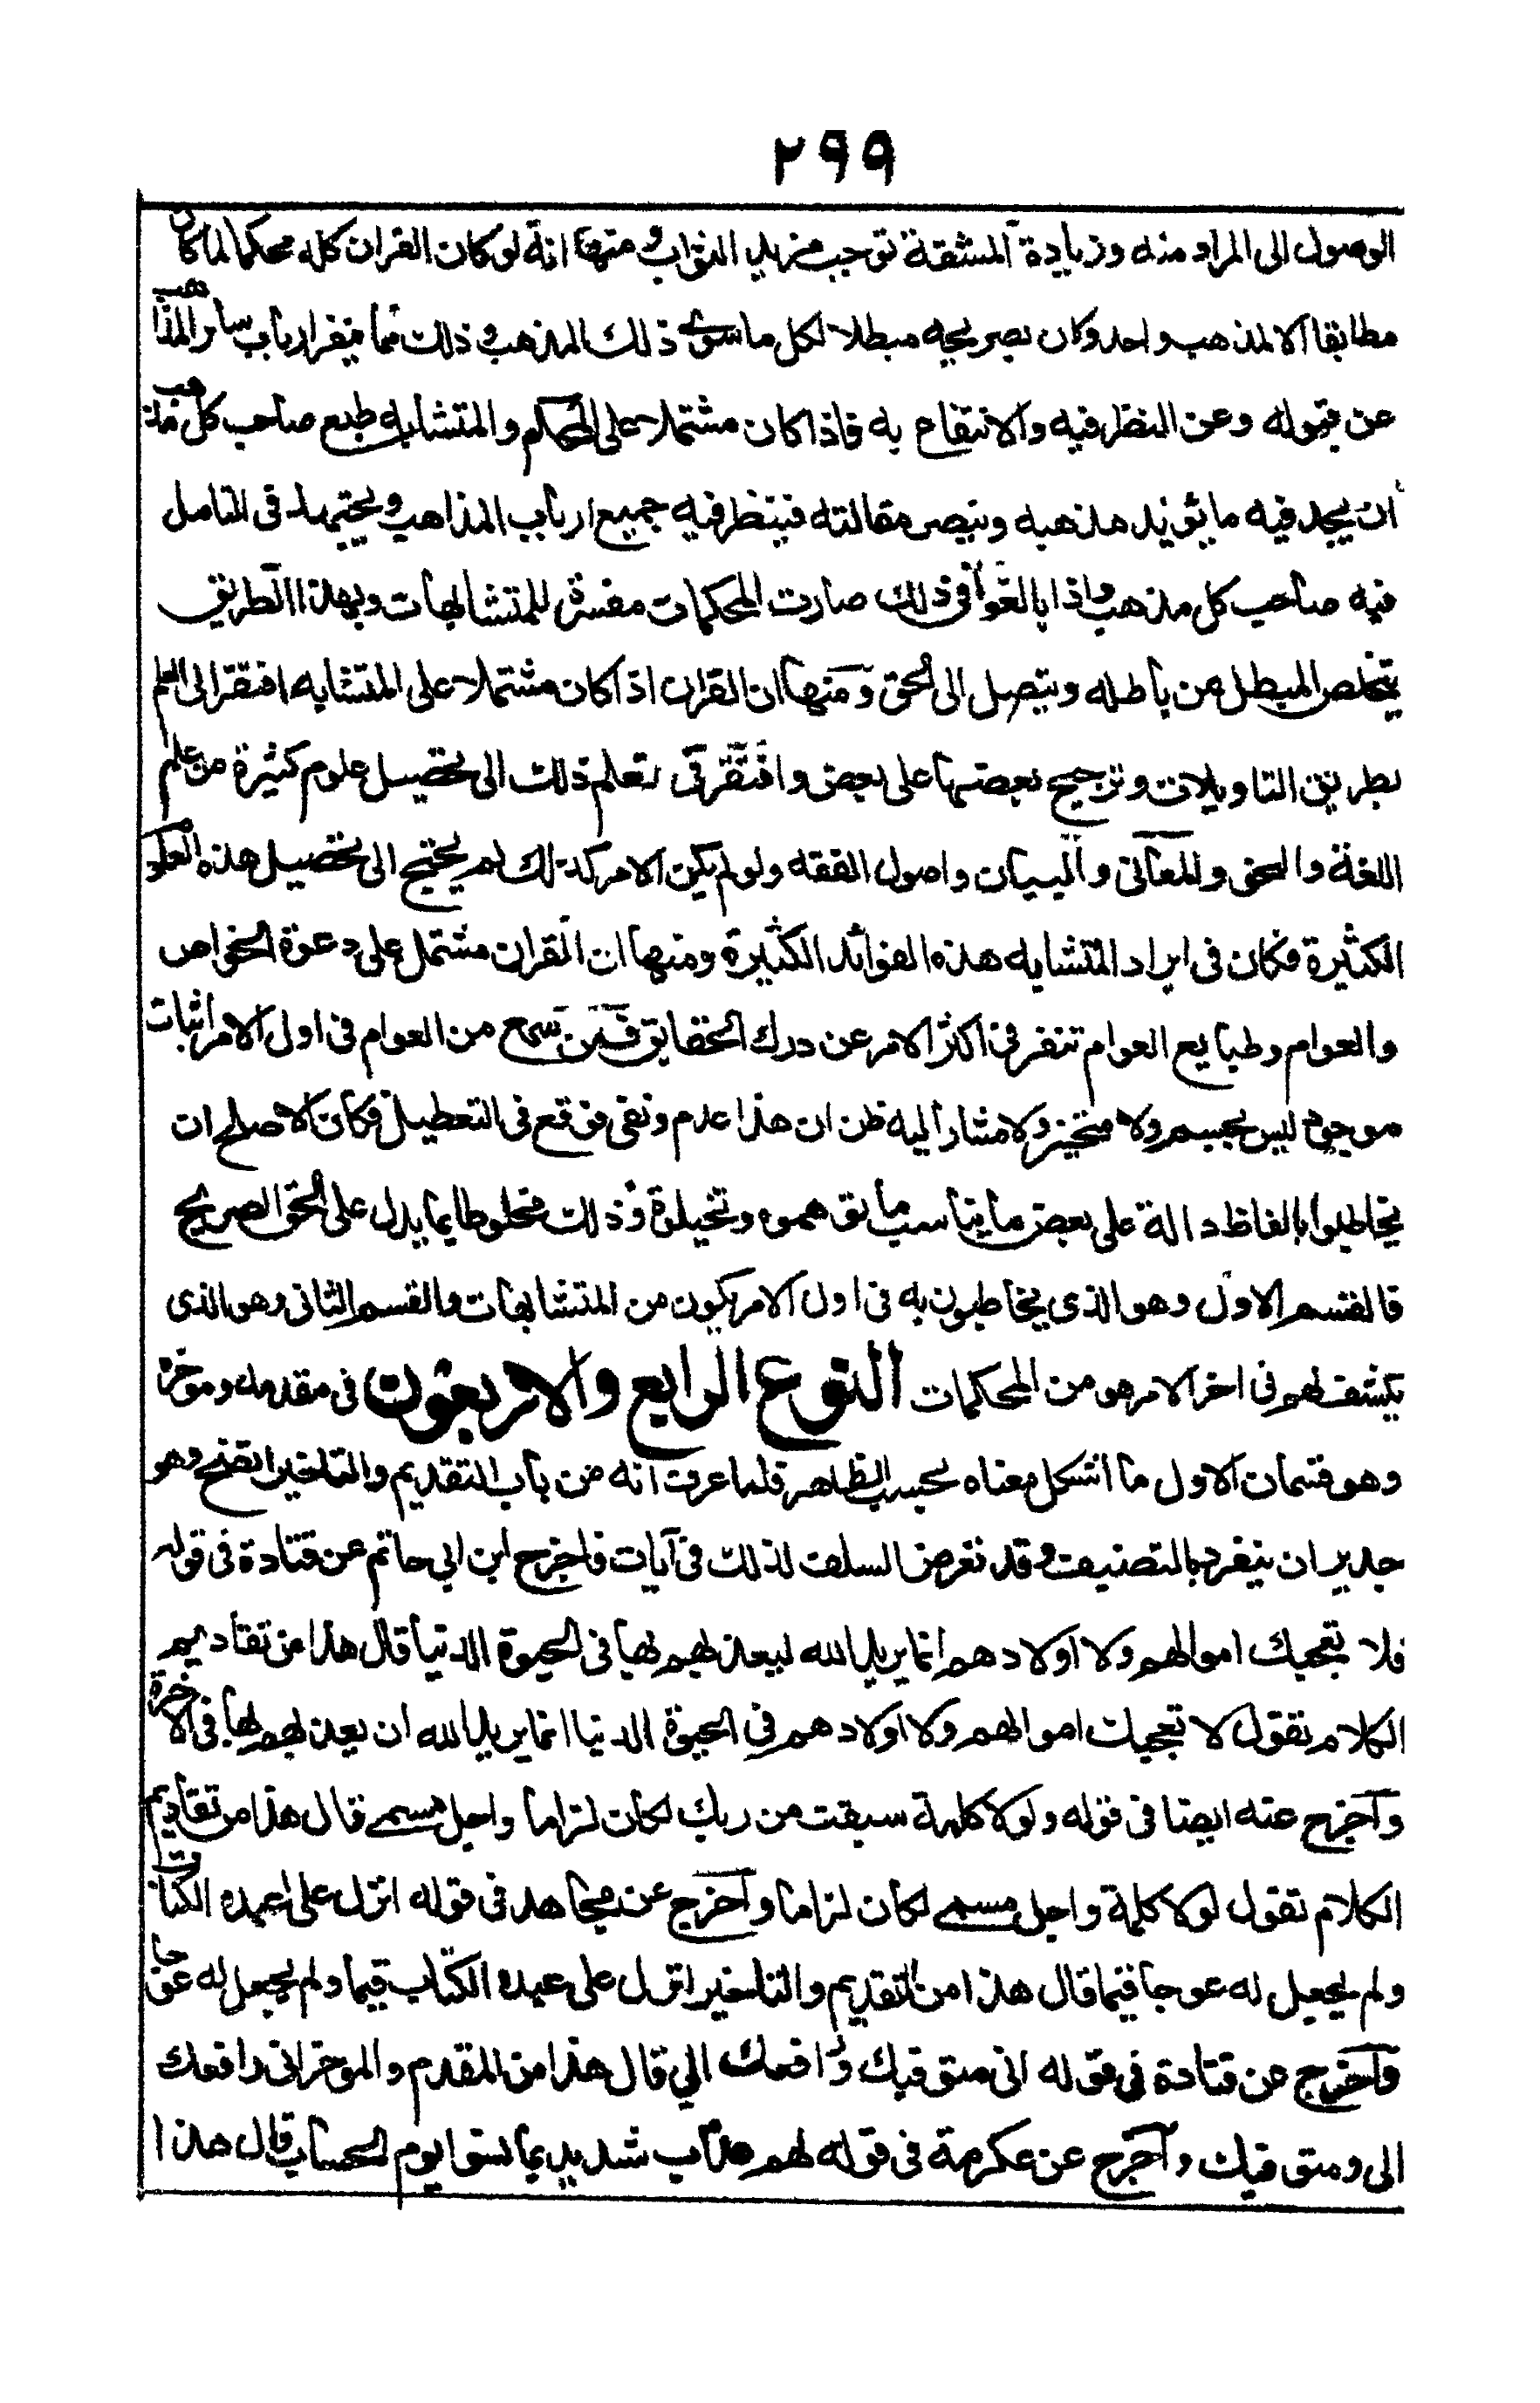 ٢٩٩
الوصول الى المراد منه وزيادة المشقة توجب مزيد الثواب ومنها انه لو كان القران كله محكما لما كان
مطابقا الا لمذهب واحد وكان بصريحه مبطلا لكل ما سوى ذلك المذهب وذلك مما ينفر ارباب سائر المذاهب
عن قبوله وعن النظر فيه والانتفاع به فاذا كان مشتملا على المحكم والمتشابه طمع صاحب كل مذهب
ان يجد فيه ما يؤيد مذهبه وينصر مقالته فينظر فيه جميع ارباب المذاهب ويجتهد فى التامل
فيه صاحب كل مذهب واذا بالغوا فى ذلك صارت المحكمات مفسرة للمتشابهات وبهذا الطريق
يتخلص المبطل من باطله ويتصل الى الحق ومنها ان القران اذا كان مشتملا على المتشابه افتقر الى العلم
بطريق التاويلات وترجيح بعضها على بعض وافتقر فى تعلم ذلك الى تحصيل علوم كثيرة من علم
اللغة والنحو والمعانى والبيان واصول الفقه ولو لم يكن الامر كذلك لم يحتج الى تحصيل هذه العلوم
الكثيرة فكان فى ايراد المتشابه هذه الفوائد الكثيرة ومنها ان القران مشتمل على دعوة الخواص
والعوام وطبايع العوام تنفر فى اكثر الامر عن درك الحقايق فمن سمع من العوام فى اول الامر اثبات
موجود ليس بجسم ولا متحيز ولا مشار اليه ظن ان هذا عدم ونفى فوقع فى التعطيل فكان الاصلح ان
يخاطبوا بالفاظ دالة على بعض ما يناسب ما توهموه وتخيلوه وذلك مخلوطا بما يدل على الحق الصريح
فالقسم الاول وهو الذى يخاطبون به فى اول الامر يكون من المتشابهات والقسم الثانى وهو الذى
يكشف لهم فى اخر الامر هو من المحكمات النوع الرابع والاربعون فى مقدمه وموخره
وهو قسمان الاول ما اشكل معناه بحسب الظاهر فلما عرف انه من باب التقديم والتاخير اتضح وهو
جدير ان ينفرد بالتصنيف وقد تعرض السلف لذلك فى آيات فاخرج ابن ابي حاتم عن قتادة فى قوله
فلا تعجبك اموالهم ولا اولادهم انما يريد الله ليعذبهم بها فى الحيوة الدنيا قال هذا من تقاديم
الكلام تقول لا تعجبك اموالهم ولا اولادهم فى الحيوة الدنيا انما يريد الله ان يعذبهم بها فى الاخرة
واخرج عنه ايضا فى قوله ولولا كلمة سبقت من ربك لكان لزاما واجل مسمى قال هذا من تقاديم
الكلام تقول لولا كلمة واجل مسمى لكان لزاما واخرج عن مجاهد فى قوله انزل على عبده الكتاب
ولم يجعل له عوجا قيما قال هذا من التقديم والتاخير انزل على عبده الكتاب قيما ولم يجعل له عوجا
واخرج عن قتادة فى قوله انى متوفيك ورافعك الي قال هذا من المقدم والموخر انى رافعك
الى ومتوفيك واخرج عن عكرمة فى قوله لهم عذاب شديد بما نسوا يوم الحساب قال هذا